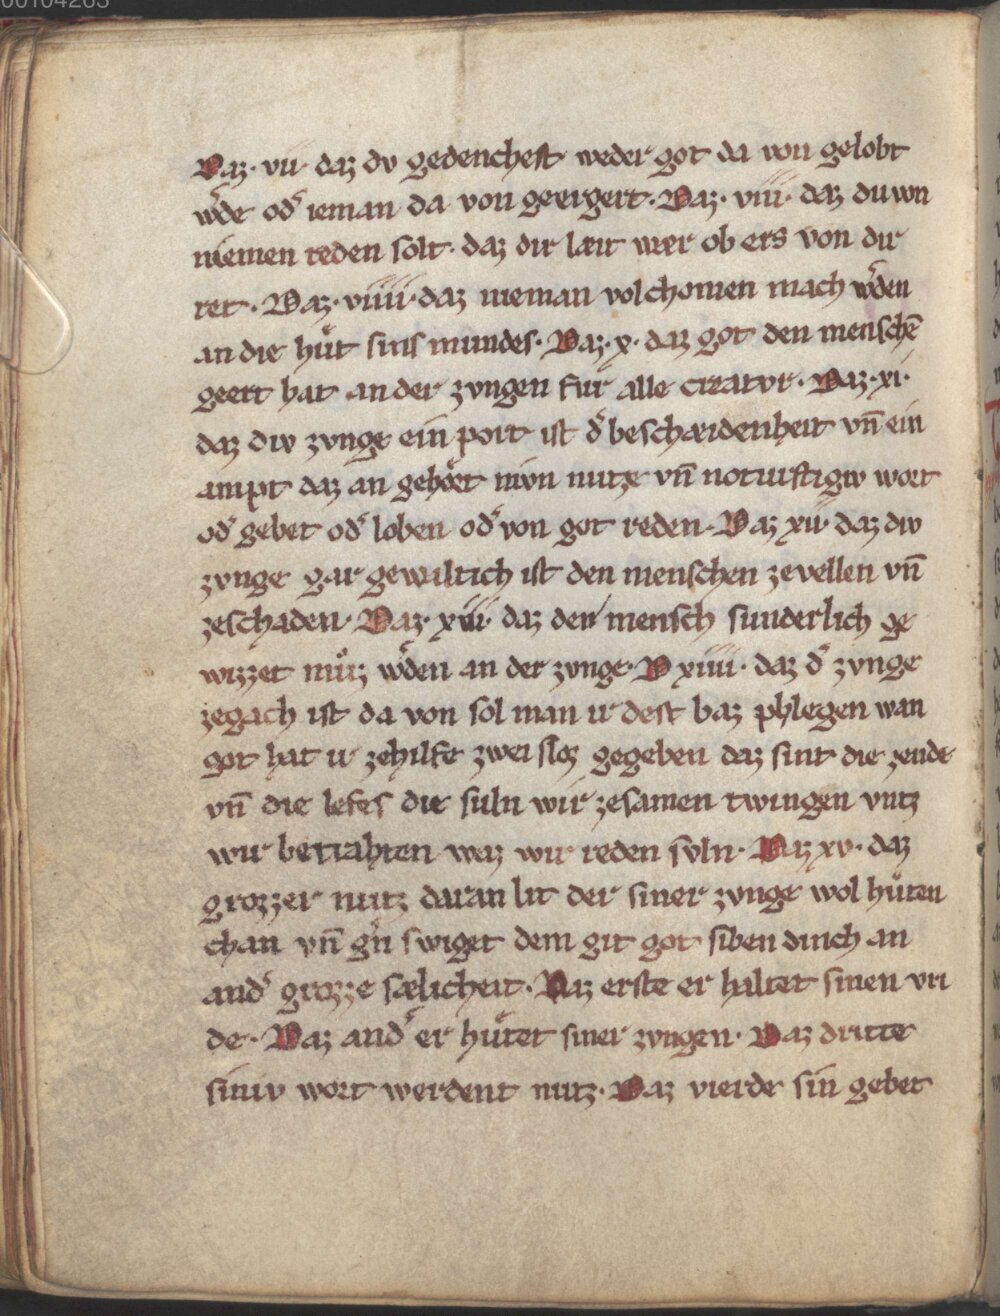 00104263
Daz· vii· daz dv gedenchest weder got da von gelobt
w̓de od̓ ieman da von geergert· Daz· viii· daz du von
niemen reden solt· daz dir lait wær ob ers von dir
ret· Daz· viiii· daz nieman volchomen mach w̓den
an die hůt sins mundes· Daz· x· daz got den menschē
geert hat an der zvngen fur alle creatvr· Daz· xi·
daz div zvnge ein port ist d̓ beschæidenheit vn̄ ein
ampt daz an gehöret niwn nutze vn̄ noturftigiv wort
od̓ gebet od̓ loben od̓ von got reden· Daz xii· daz div
zvnge gar gewaltich ist den menschen zevellen vn̄
zeschaden· Daz· xiii· daz der mensch sunderlich ge
wizzet můz w̓den an der zvnge· D xiiii· daz d̓ zvnge
zegach ist da von sol man ir dest baz phlegen wan
got hat ir zehilfe zwei sloz gegeben daz sint die zende
vn̄ die lefes die suln wir zesamen twingen vntz
wir betrahten waz wir reden svln· Daz xv· daz
grozzer nutz daran lit der siner zvnge wol hůten
chan vn̄ g̓n swiget dem git got siben dinch an
and̓ grozze sælicheit· Daz erste er haltet sinen vri
de· Daz and̓ er hůtet siner zvngen· Daz dritte
siniv wort werdent nutz· Daz vierde sin gebet